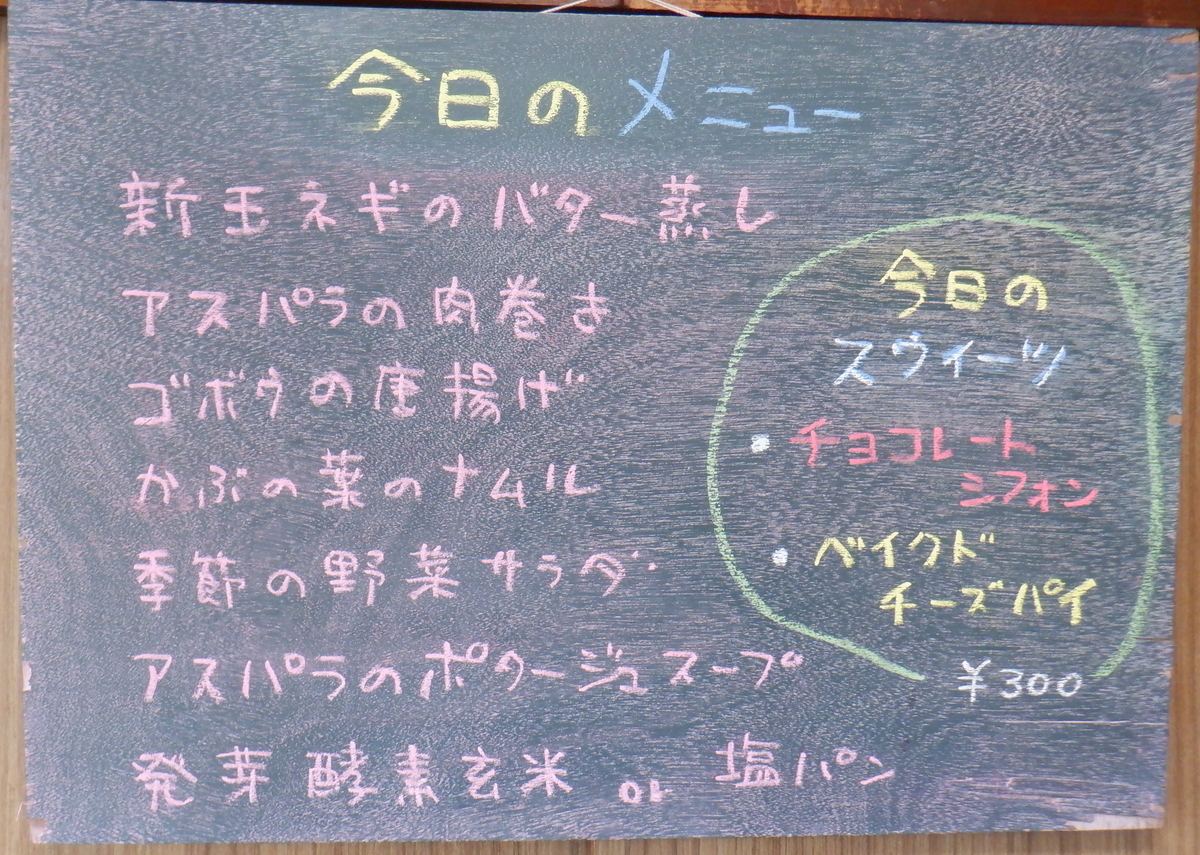 今日のメニュー
新玉ネギのバター蒸し
アスパラの肉巻き
ゴボウの唐揚げ
かぶの葉のナムル
季節の野菜サラダ
アスパラのポタージュスープ
発芽酵素玄米 or 塩パン
今日の
スウィーツ
・チョコレート
シフォン
・ベイクド
チーズパイ
¥300